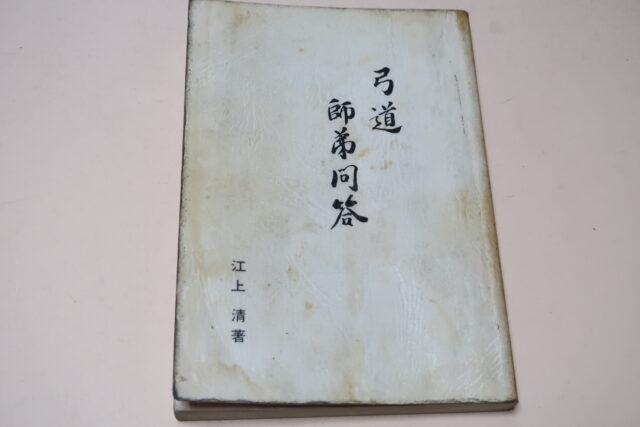 弓道
師弟問答
江上 清著